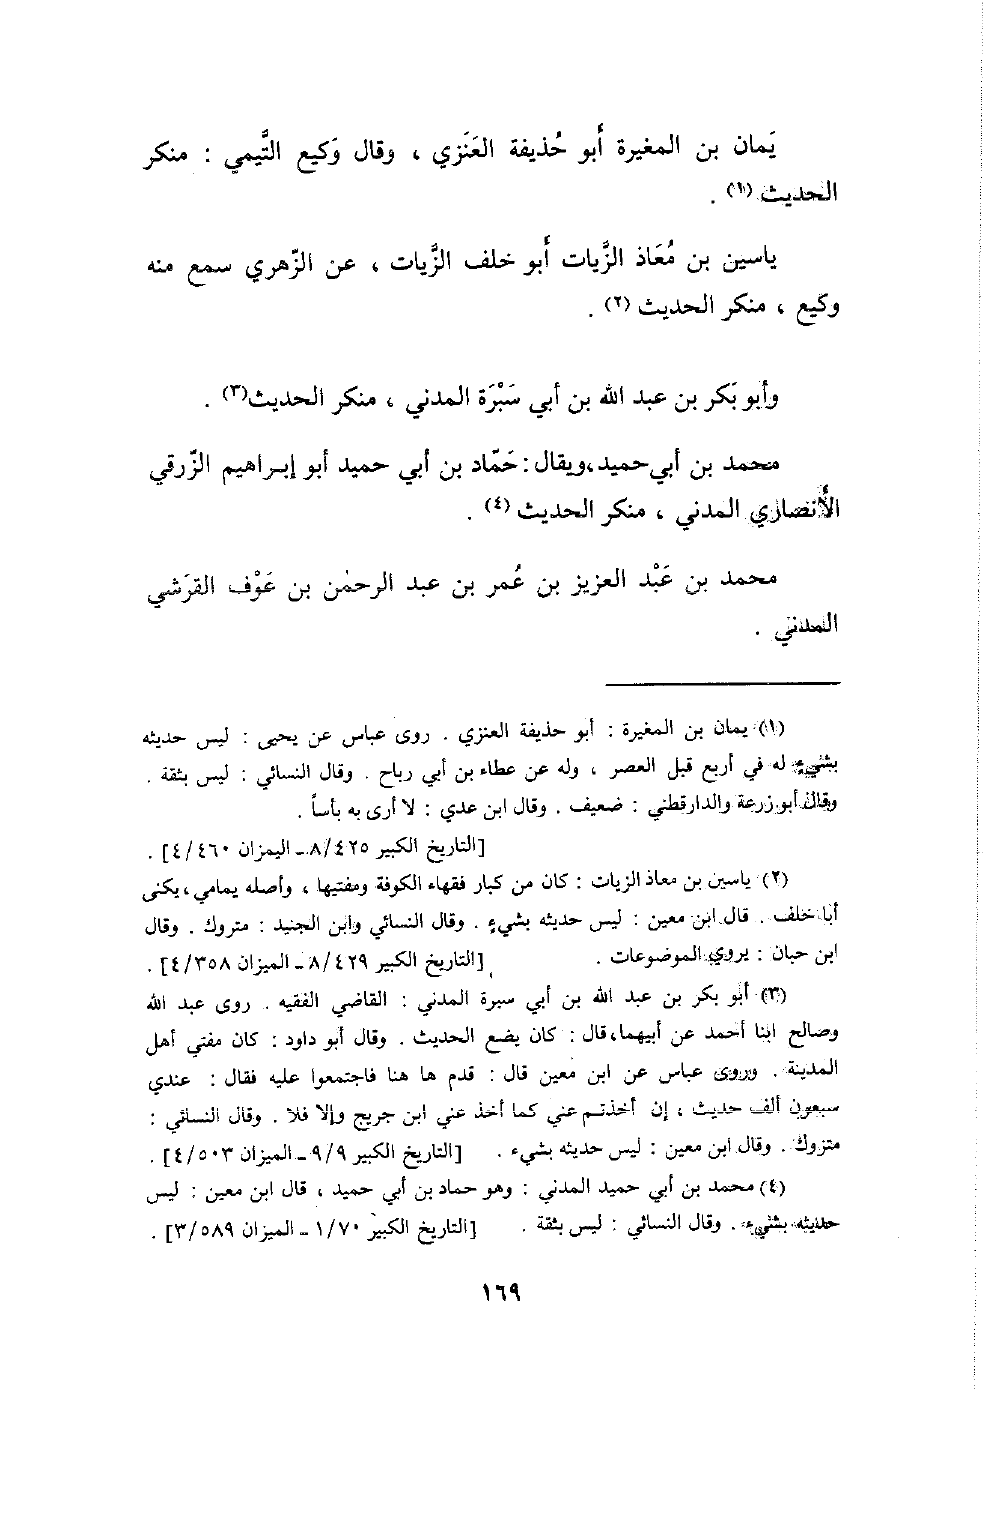 يَمان بن المغيرة أَبو حُذيفة العَنَزي ، وقال وَكيع التَّيمي : منكر
الحديث (١) .
ياسين بن مُعَاذ الزَّيات أَبو خلف الزَّيات ، عن الزّهري سمع منه
وكيع ، منكر الحديث (٢) .
وأبو بَكر بن عبد الله بن أبي سَبْرَة المدني ، منكر الحديث(٣) .
محمد بن أبي حميد،ويقال : حَمّاد بن أبي حميد أبو إبراهيم الزّرقي
الأَنصاري المدني ، منكر الحديث (٤) .
محمد بن عَبْد العزيز بن عُمر بن عبد الرحمٰن بن عَوْف القرَشي
المدني .
(١) يمان بن المغيرة : أبو حذيفة العنزي . روى عباس عن يحيى : ليس حديثه
بشيء له في أربع قبل العصر ، وله عن عطاء بن أبي رباح . وقال النسائي : ليس بثقة .
وقال أبو زرعة والدارقطني : ضعيف . وقال ابن عدي : لا أرى به بأساً .
[التاريخ الكبير ٨/٤٢٥ ـ اليمزان ٤/٤٦٠] .
(٢) ياسين بن معاذ الزيات : كان من كبار فقهاء الكوفة ومفتيها ، وأصله يمامي ، يكنى
أبا خلف . قال ابن معين : ليس حديثه بشيء . وقال النسائي وابن الجنيد : متروك . وقال
ابن حبان : يروي الموضوعات . [التاريخ الكبير ٨/٤٢٩ ـ الميزان ٤/٣٥٨] .
(٣) أبو بكر بن عبد الله بن أبي سبرة المدني : القاضي الفقيه . روى عبد الله
وصالح ابنا أحمد عن أبيهما،قال : كان يضع الحديث . وقال أبو داود : كان مفتي أهل
المدينة . وروى عباس عن ابن معين قال : قدم ها هنا فاجتمعوا عليه فقال : عندي
سبعون ألف حديث ، إن أخذتم عني كما أخذ عني ابن جريج وإلا فلا . وقال النسائي :
متروك . وقال ابن معين : ليس حديثه بشيء . [التاريخ الكبير ٩/٩ ـ الميزان ٤/٥٠٣] .
(٤) محمد بن أبي حميد المدني : وهو حماد بن أبي حميد ، قال ابن معين : ليس
حديثه بشيء . وقال النسائي : ليس بثقة . [التاريخ الكبير ١/٧٠ ـ الميزان ٣/٥٨٩] .
١٦٩